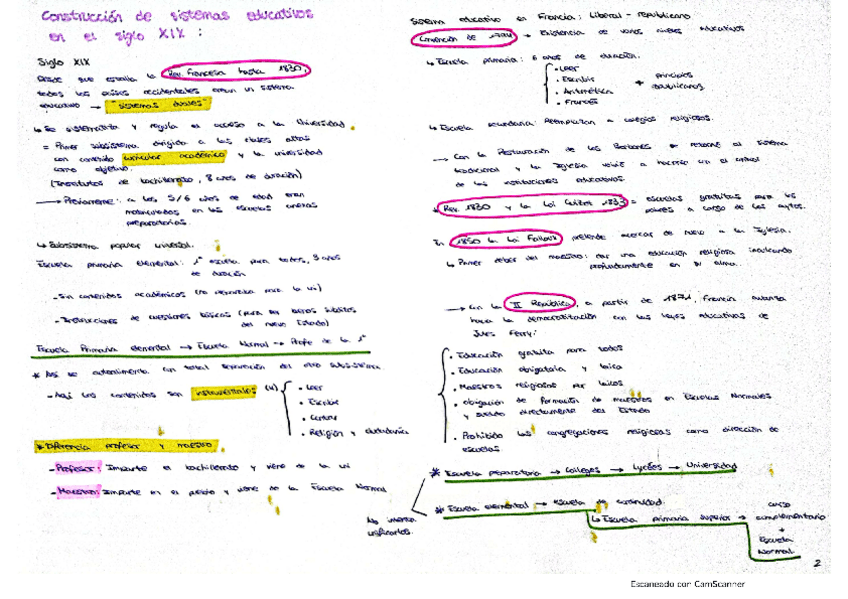 Construcción de sistemas educativos
en el siglo XIX :
Siglo XIX
Desde que estalla la Rev. Francesa hasta 1830,
todos los países occidentales crean un sistema
educativo → "sistemas duales"
↳ Se sistematiza y regula el acceso a la Universidad.
= Primer subsistema dirigido a las clases altas
con contenido curricular académico y la universidad
como objetivo.
(Institutos de bachillerato, 8 años de duración)
→ Previamente: a los 5/6 años de edad eran
matriculados en las escuelas anexas
preparatorias.
↳ Subsistema popular universal.
Escuela primaria elemental: 1ª escuela para todos, 3 años
de duración
- Sin contenidos académicos (no preparaba para la uni)
- Instrucciones de cuestiones básicas (para ser buenos súbditos
del nuevo Estado)
Escuela Primaria elemental → Escuela Normal → Profe de la 1ª
* Así se automantenía con total separación del otro subsistema
- Aquí los contenidos son instrumentales (4)
• Leer
• Escribir
• Contar
• Religión y ciudadanía
* Diferencia profesor y maestro
- Profesor: Imparte el bachillerato y viene de la uni
- Maestro: Imparte en el pueblo y viene de la Escuela Normal
Sistema educativo en Francia: Liberal - republicano
Convención de → Existencia de varios niveles educativos
↳ Escuela primaria: 6 años de duración.
• Leer
• Escribir
• Aritmética
• Francés
+ principios
republicanos
↳ Escuela secundaria: Reemplazan a colegios religiosos.
→ Con la Restauración de los Borbones retorno al sistema
tradicional y la Iglesia volvió a hacerse con el control
de las instituciones educativas.
* Rev. 1830 y la Loi Guizot 1833 = escuelas gratuitas para los
pobres a cargo de los aytos.
En 1850 la Loi Falloux pretende acercar de nuevo a la Iglesia.
↳ Primer deber del maestro: dar una educación religiosa inculcando
profundamente en su alma.
→ Con la III República, a partir de 1871, Francia avanza
hacia la democratización con las leyes educativas de
Jules Ferry:
• Educación gratuita para todos
• Educación obligatoria y laica
• Maestros religiosos por laicos
• obligación de formación de maestros en Escuelas Normales
y sueldo directamente del Estado
• Prohibido las congregaciones religiosas como dirección de
escuelas
* Escuela preparatoria → Colleges → Lycées → Universidad
* Escuela elemental → escuela de continuidad
↳ Escuela primaria superior → curso
complementario
+
Escuela
Normal
No intentan
unificarlos.
2
Escaneado con CamScanner